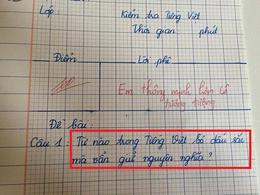 Lớp:
Kiểm tra Tiếng Việt
Thời gian phút
Điểm
Lời phê
Em thông minh hơn cô
tưởng tượng
Đề bài:
Câu 1: Từ nào trong Tiếng Việt bỏ dấu sắc
mà vẫn giữ nguyên nghĩa?